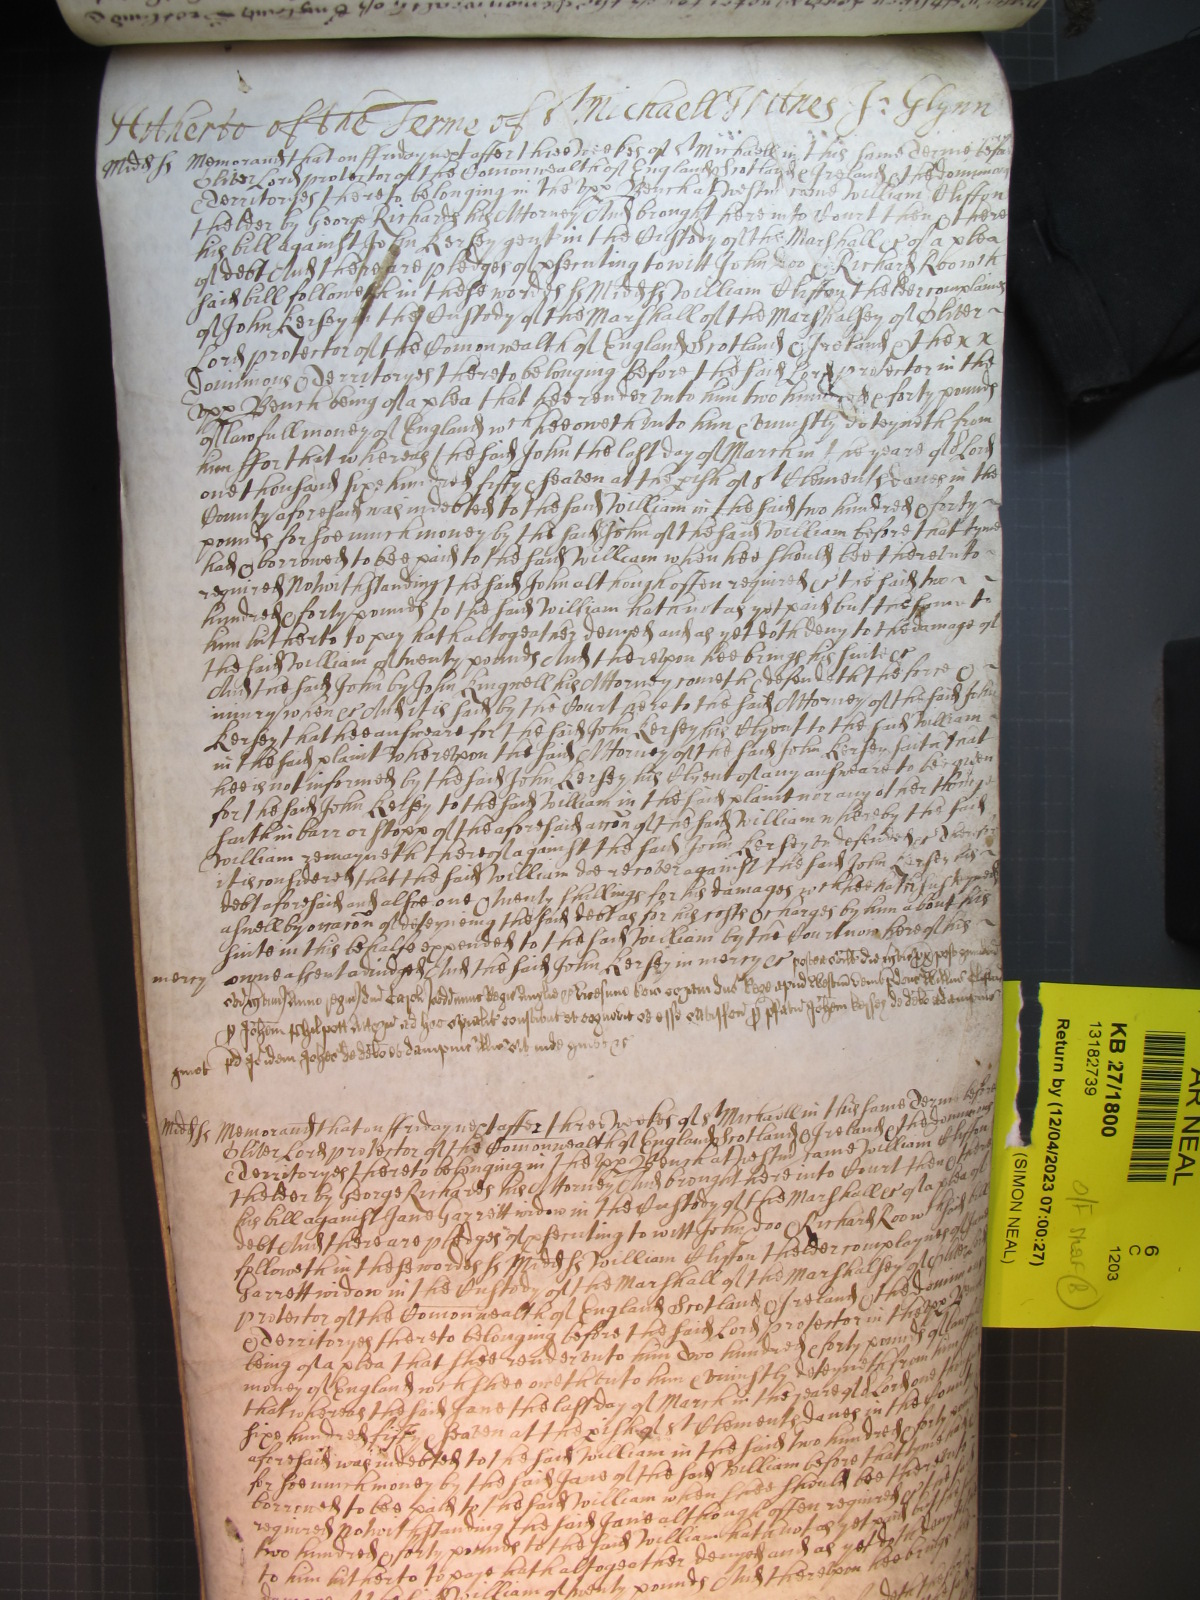 Hitherto of the Terme of St Michaell Witnes J: Glynn
Midds ss Memorand that on ffriday next after three weekes of St Michaell in this same Terme before
Oliver Lord protector of the Comonwealth of England Scotland & Ireland & the dominions
& Territoryes thereto belonging in the upp Bench at Westm came William Cliffton
thelder by George Richards his Attorney And brought here into Court then & there
his bill against John Kersey gent in the Custody of the Marshall &c of a plea
of debt And there are pledges of psecuting to witt John Doo & Richard Roo wch
said bill followeth in these wordes ss Midds ss William Cliffton thelder complaines
of John Kersey in the Custody of the Marshall of the Marshalsey of Oliver
Lord protector of the Comonwealth of England Scotland & Ireland & the x x
dominions & Territoryes thereto belonging before the said Lord protector in the
upp Bench being of a plea that hee render unto him two hundred & forty pounds
of lawfull money of England wch hee oweth unto him & uniustly deteyneth from
him ffor that whereas the said John the last day of March in the yeare of or Lord
one thousand sixe hundred fifty & seaven at the pish of St Clements danes in the
County aforesaid was indebted to the said William in the said two hundred & forty
pounds for soe much money by the said John of the said William before that tyme
had & borrowed to bee paid to the said William when hee should bee thereunto
required Notwithstanding the said John although often required &c the said two
hundred & forty pounds to the said William hath not as yet paid but the same to
him hitherto to pay hath altogeather denyed and as yet doth deny to the damage of
the said William of twenty pounds And thereupon hee brings his suite &c
And the said John by John Kingwell his Attorney cometh & defendeth the force &
iniury when &c And it is said by the Court here to the said Attorney of the said John
Kersey that hee answeare for the said John Kersey his Clyent to the said William
in the said plaint Whereupon the said Attorney of the said John Kersey saith that
hee is not informed by the said John Kersey his Clyent of any answeare to bee given
for the said John Kersey to the said William in the said plaint nor any other thing
saith in barr or stopp of the aforesaid accon of the said William whereby the said
William remayneth thereof against the said John Kersey undefended &c Therefore
it is considered that the said William doe recover against the said John Kersey his
debt aforesaid and alsoe one & twenty shillings for his damages wch hee hath susteyned
aswell by occacon of deteyneing the said debt as for his costs & charges by him about his
suite in this behalfe expended to the said William by the Court now here of his
mercy owne assent adiudged And the said John Kersey in mercy &c
Midds ss Memorand that on ffriday next after three weekes of St Michaell in this same Terme before
Oliver Lord protector of the Comonwealth of England Scotland & Ireland & the dominions
& Territoryes thereto belonging in the upp Bench at Westm came William Cliffton
thelder by George Richards his Attorney And brought here into Court then & there
his bill against Jane Garrett widow in the Custody of the Marshall &c of a plea of
debt And there are pledges of psecuting to witt John Doo & Richard Roo wch said bill
followeth in these wordes ss Midds ss William Cliffton thelder complaynes of Jane
Garrett widow in the Custody of the Marshall of the Marshalsey of Oliver Lord
protector of the Comonwealth of England Scotland & Ireland & the dominions
& Territoryes thereto belonging before the said Lord protector in the upp Bench
being of a plea that shee render unto him two hundred & forty pounds of lawfull
money of England wch shee oweth unto him & uniustly deteyneth from him ffor
that whereas the said Jane the last day of March in the yeare of or Lord one thousand
sixe hundred fifty & seaven at the pish of St Clements danes in the County
aforesaid was indebted to the said William in the said two hundred & forty pounds
for soe much money by the said Jane of the said William before that tyme had &
borrowed to bee paid to the said William when shee should bee thereunto
required Notwithstanding the said Jane although often required &c the said
two hundred & forty pounds to the said William hath not as yet paid but the same
to him hitherto to paye hath altogeather denyed and as yet doth deny to the
William of twenty pounds And thereupon hee brings
AR NEAL
KB 27/1800
13182739
Return by (12/04/2023 07:00:27)
(SIMON NEAL)
6
C
1203